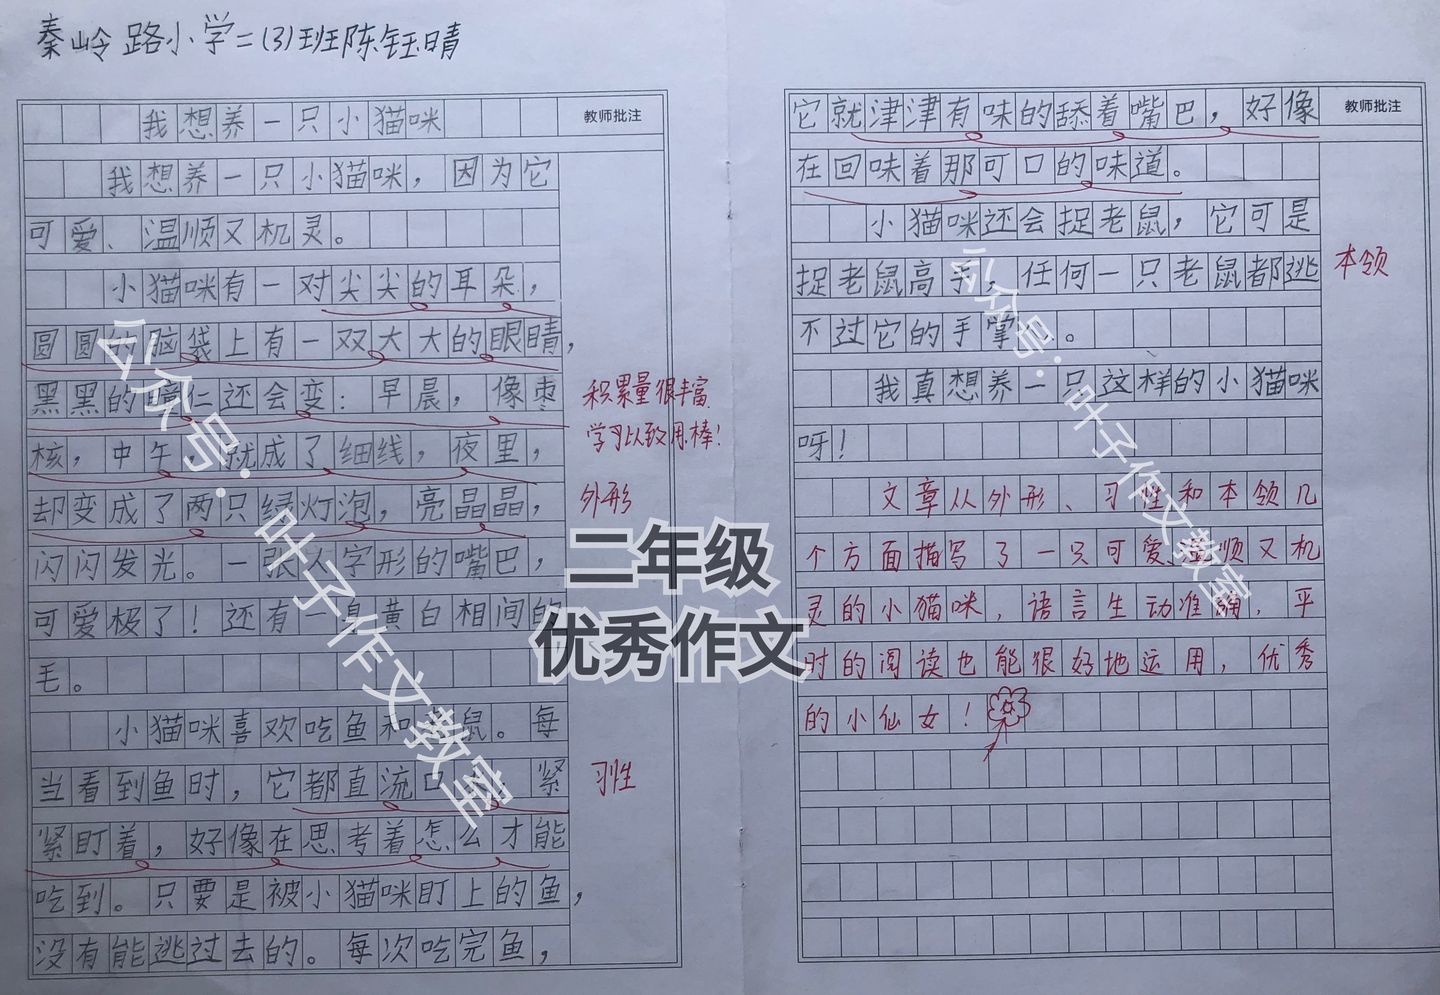 秦岭路小学二(3)班陈钰晴
我想养一只小猫咪
教师批注
我想养一只小猫咪，因为它
可爱、温顺又机灵。
小猫咪有一对尖尖的耳朵，
圆圆的脑袋上有一双大大的眼睛，
黑黑的瞳仁还会变：早晨，像枣
核，中午，就成了细线，夜里，
却变成了两只绿灯泡，亮晶晶，
闪闪发光。一张人字形的嘴巴，
可爱极了！还有一身黄白相间的
毛。
小猫咪喜欢吃鱼和老鼠。每
当看到鱼时，它都直流口水，紧
紧盯着，好像在思考着怎么才能
吃到。只要是被小猫咪盯上的鱼，
没有能逃过去的。每次吃完鱼，
积累量很丰富
学习以致用棒！
外形
习性
教师批注
它就津津有味的舔着嘴巴，好像
在回味着那可口的味道。
小猫咪还会捉老鼠，它可是
捉老鼠高手，任何一只老鼠都逃
不过它的手掌心。
我真想养一只这样的小猫咪
呀！
本领
文章从外形、习性和本领几
个方面描写了一只可爱、温顺又机
灵的小猫咪，语言生动准确，平
时的阅读也能很好地运用，优秀
的小仙女！
公众号：叶子作文教室
公众号：叶子作文教室
二年级
优秀作文